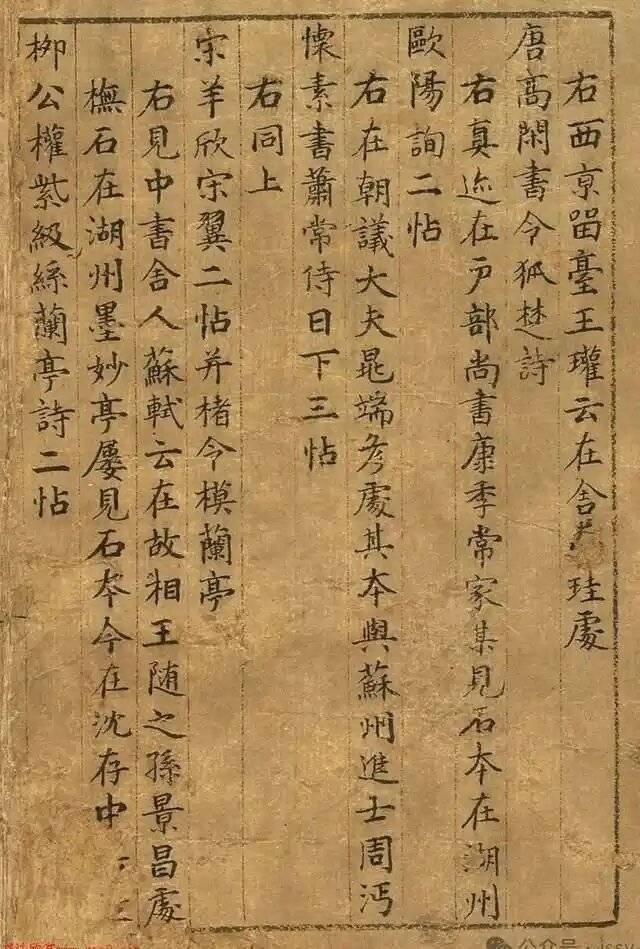 右西亰畱臺王瓘云在舍珪處
唐髙閑書令狐楚詩
右真迹在戶部尚書康季常家某見石本在湖州
歐陽詢二帖
右在朝議大夫晁端彥處其本與蘇州進士周沔
懷素書蕭常侍日下三帖
右同上
宋羊欣宋翼二帖并楮令模蘭亭
右見中書舍人蘇軾云在故相王随之孫景昌處
橅石在湖州墨妙亭屢見石本今在沈存中
栁公權紫級絲蘭亭詩二帖
公众号